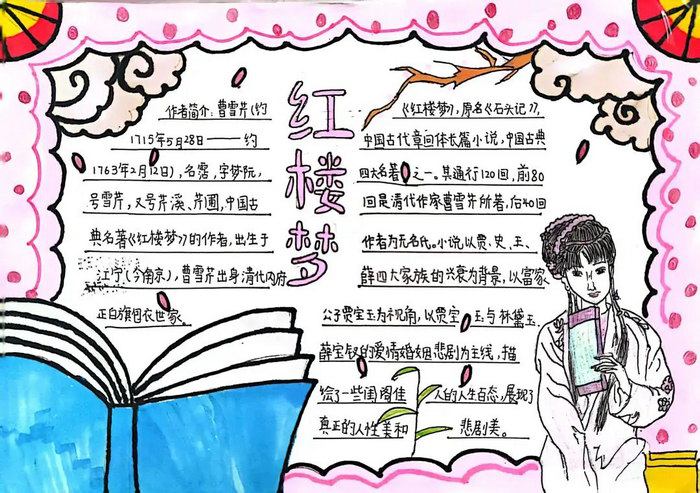 红楼梦
作者简介：曹雪芹（约
1715年5月28日——约
1763年2月12日），名霑，字梦阮，
号雪芹，又号芹溪、芹圃，中国古
典名著《红楼梦》的作者，出生于
江宁（今南京），曹雪芹出身清代内府
正白旗包衣世家。
《红楼梦》，原名《石头记》，
中国古代章回体长篇小说，中国古典
四大名著之一。其通行120回，前80
回是清代作家曹雪芹所著，后40回
作者为无名氏。小说以贾、史、王、
薛四大家族的兴衰为背景，以富家
公子贾宝玉为视角，以贾宝玉与林黛玉、
薛宝钗的爱情婚姻悲剧为主线，描
绘了一些闺阁佳人的人生百态，展现了
真正的人性美和悲剧美。